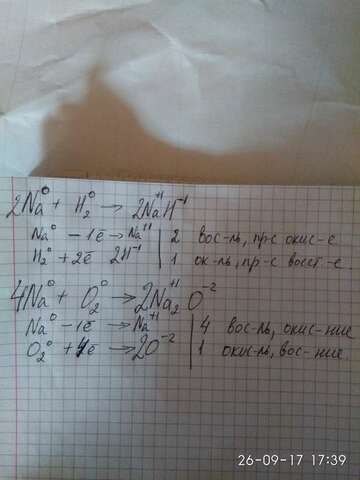 2Na⁰ + H₂⁰ → 2Na⁺¹H⁻¹
Na⁰ – 1e̅ → Na⁺¹ | 2 вос-ль, пр-с окис-е
H₂⁰ + 2e̅ 2H⁻¹ | 1 ок-ль, пр-с восст-е
4Na⁰ + O₂⁰ → 2Na₂⁺¹O⁻²
Na⁰ – 1e̅ → Na⁺¹ | 4 вос-ль, окис-ние
O₂⁰ + 4e̅ → 2O⁻² | 1 окис-ль, вос-ние
26-09-17 17:39